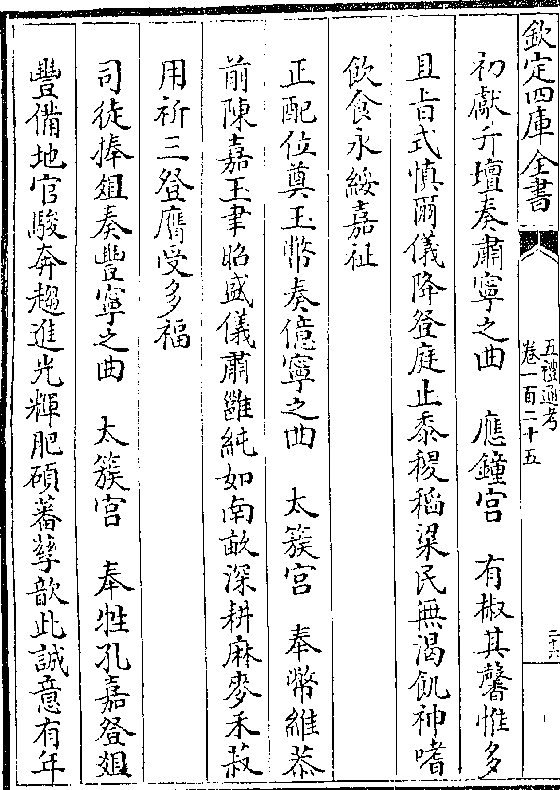 欽定四庫全書
五禮通考
卷一百二十五
二十六
初獻升壇奏肅寧之曲　應鐘宮　有椒其馨惟多
且旨式慎爾儀降登庭止黍稷稻粱民無渴飢神嗜
飲食永綏嘉祉
正配位奠玉幣奏億寧之曲　太簇宮　奉幣維恭
前陳嘉玉聿昭盛儀肅雝純如南畝深耕麻麥禾菽
用祈三登膺受多福
司徒捧俎奏豐寧之曲　太簇宮　奉牲孔嘉登俎
豐備地官駿奔趨進光輝肥碩蕃孳歆此誠意有年